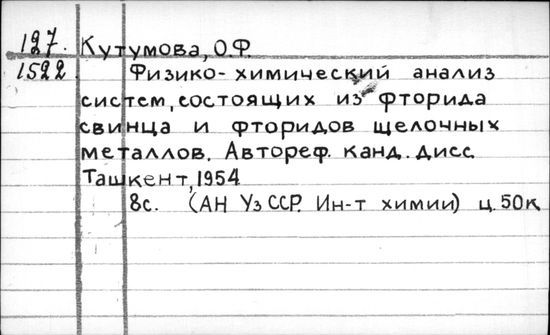 127. Кутумова, О.Ф.
1522. Физико-химический анализ
систем, состоящих из фторида
свинца и фторидов щелочных
металлов. Автореф. канд. дисс.
Ташкент, 1954
8с. (АН УзССР. Ин-т химии) ц. 50к